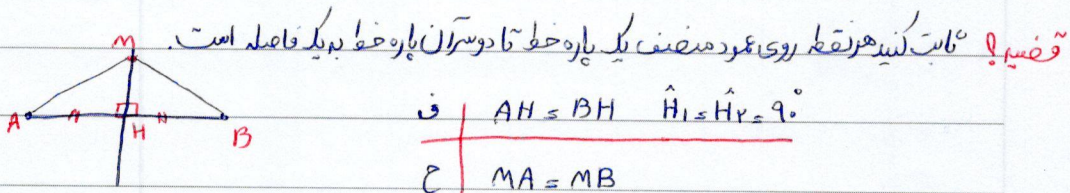 قضیه؟ ثابت کنید هر نقطه روی عمود منصف یک پاره خط تا دو سر آن پاره خط به یک فاصله است.
M
A H B
ف | AH = BH Ĥ۱ = Ĥ۲ = ۹۰°
ح | MA = MB